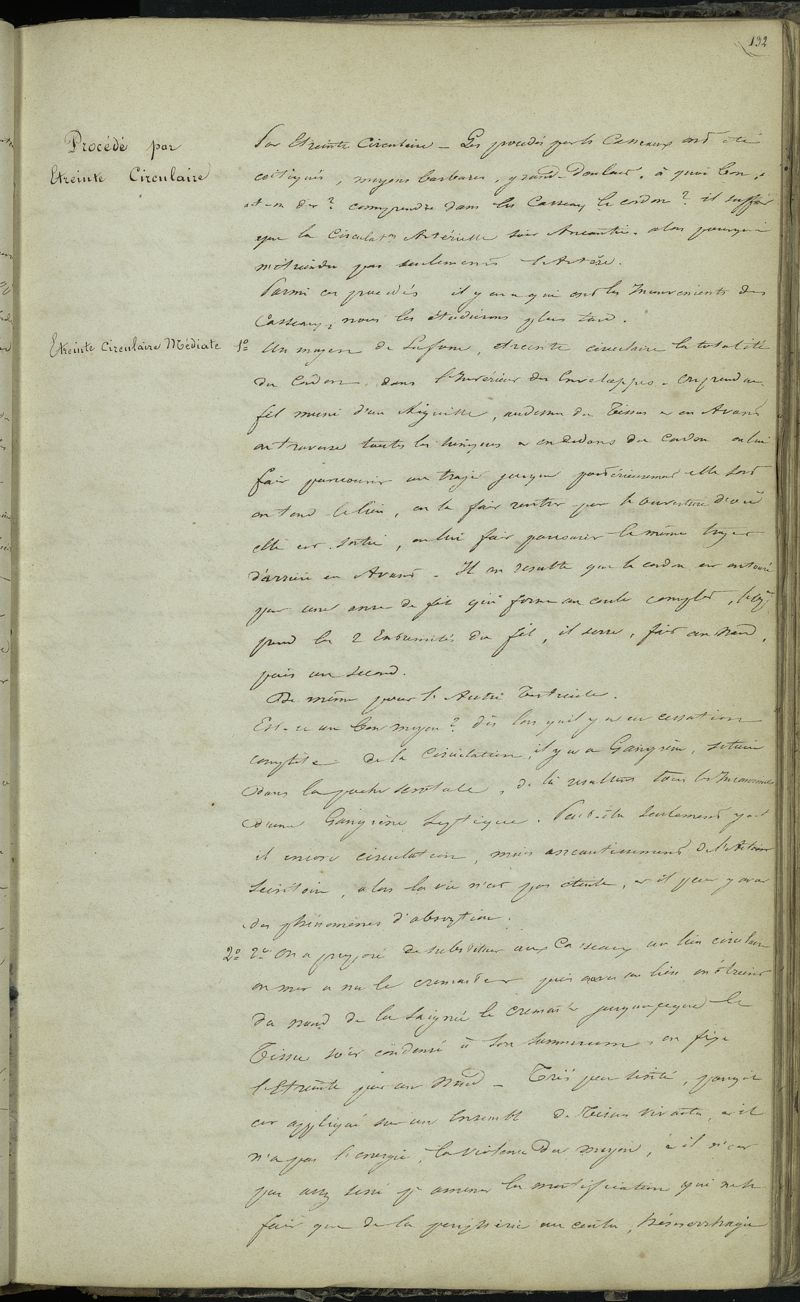 192
Procédé par
Etreinte Circulaire
Par Etreinte Circulaire – Les procédés par les Casseaux ont été
critiqués, moyens barbares, grand douleur, à quoi bon,
a-t-on dit ? comprendre dans les Casseaux le cordon ? il suffit
que la Circulaton Artérielle soit Anéantie. alors pourquoi
n'étreindre pas seulement l'Artère.
Parmi ces procédés il y en a qui ont les Inconvénients des
Casseaux, nous les étudierons plus tard.
Etreinte Circulaire Médiate
1º Un moyen de étreinte circulaire la totalité
du Cordon, dans l'Intérieur des Enveloppes. on prend un
fil muni d'un Aiguille, au dessus du Tissus et en Avant
on traverse toutes les tuniques et en dedans du cordon on lui
fait parcourir un trajet jusque postérieurement elle sort
on tend le lien, on la fait rentrer par l'ouverture d'où
elle est sortie, on lui fait parcourir le même trajet
d'arrière en Avant. Il en résulte que le cordon est entouré
par une anse de fil qui forme un cercle complet,
prend les 2 Extrémités du fil, il serre, fait un Nœud,
puis un second.
De même pour l'Autre Testicule.
Est-ce un bon moyen ? dès lors qu'il y a eu cessation
complète de la Circulation, il y a Gangrène,
dans la poche scrotale, de là résultent tous les Inconvénients
d'une Gangrène Septique. Peut-être seulement y a-t
il encore circulation, mais anéantissement de l'Action
, alors la vie n'est pas éteinte, et il peut y avoir
des phénomènes d'absorption.
2º 2º On a proposé de substituer aux Casseaux un lien circulaire
on met a nu le cremaster puis avec un lien on étreint
du nœud de la Saignée le cremaster jusqu'a ce que le
Tissu soit condensé à son summum, on fixe
l'étreinte par un Nœud – Très peu usité, parce qu'il
est appliqué sur un Ensemble de Tissus vivants, et il
n'a pas l'énergie, la violence du moyen, et il n'est
pas assez serré pr amener la mortification qui ne se
fait que de la périphérie au centre, hémorrhagie